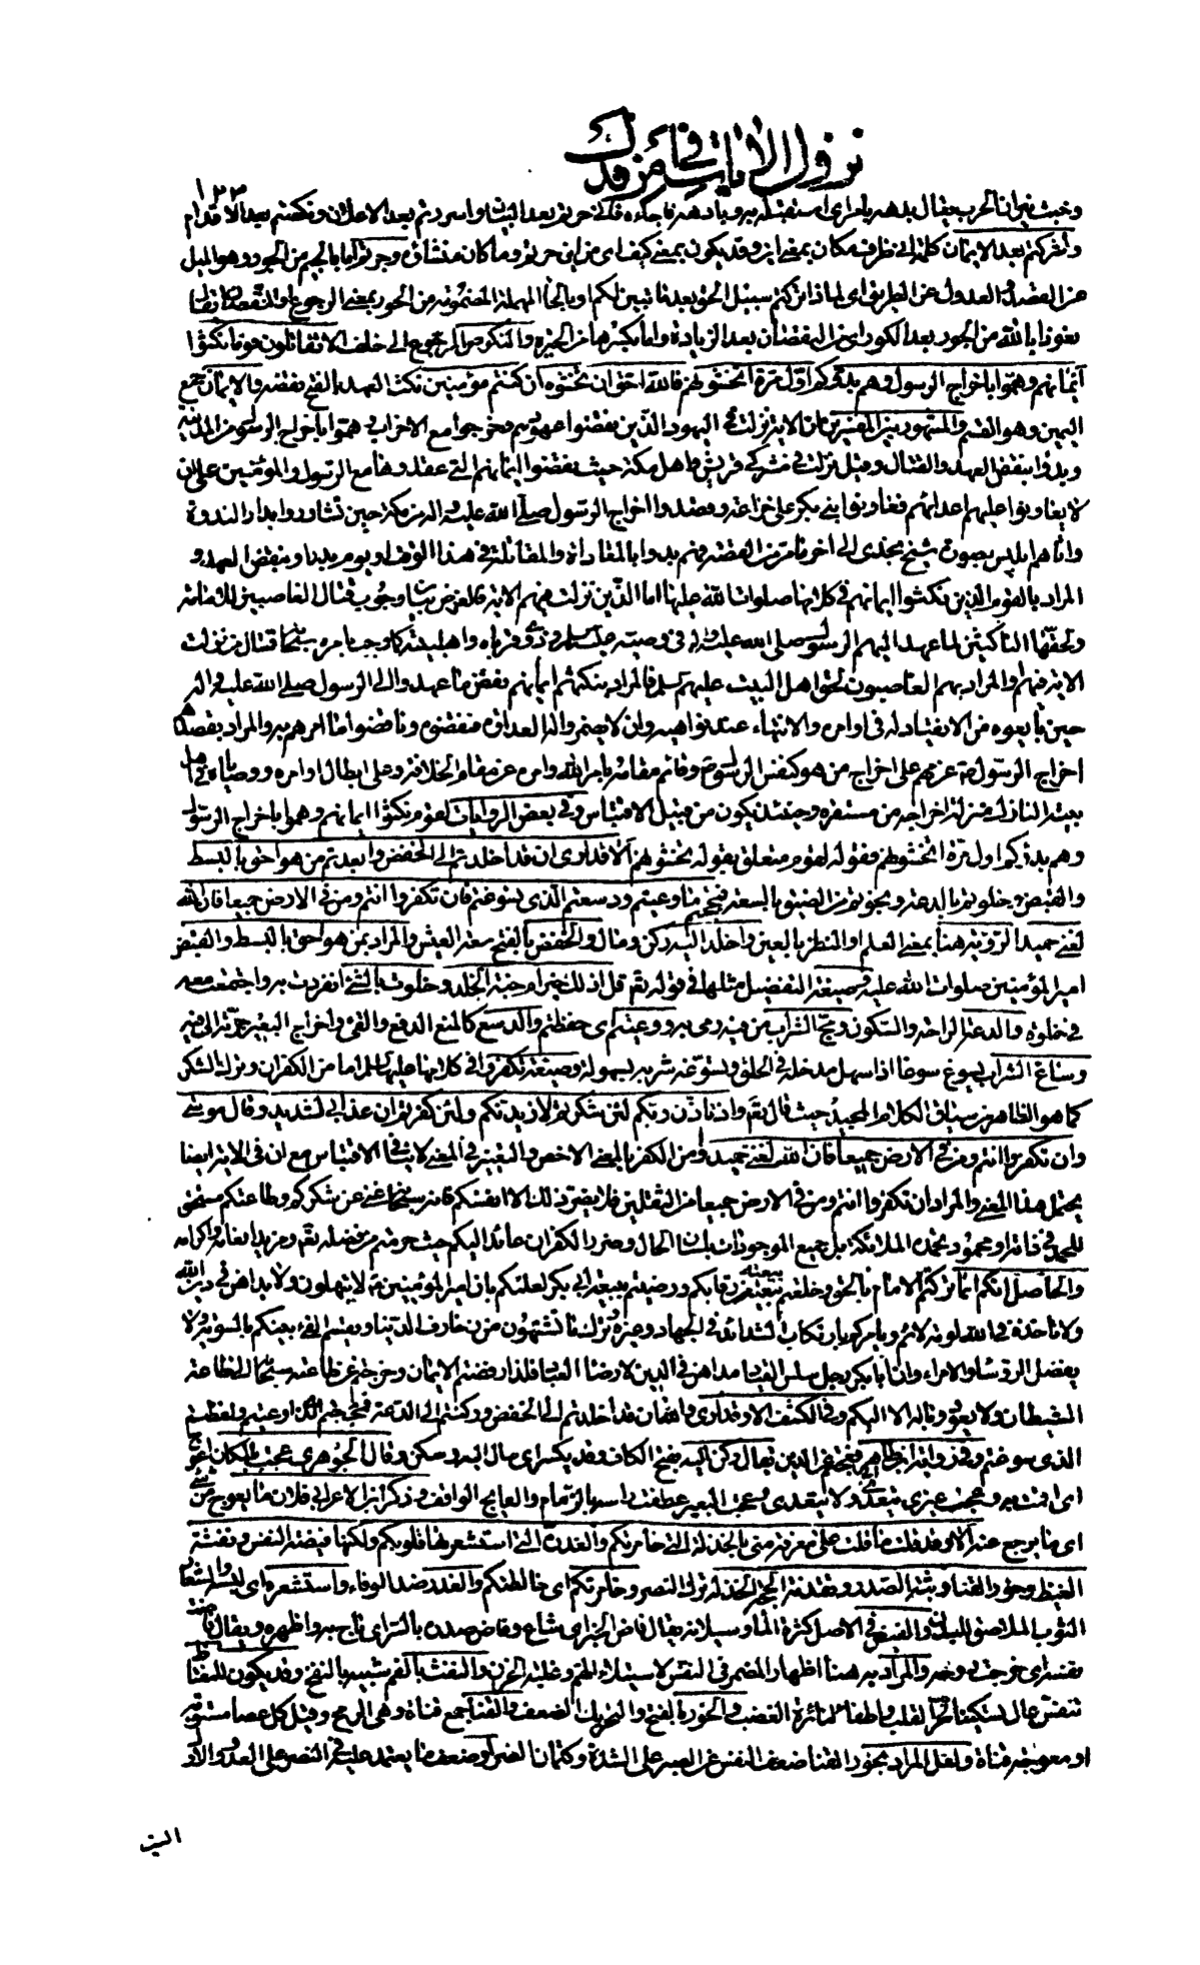 نزول الآيات في أمر فدك
١٢٣
وخبت نيران الحرب يقال بدهه بأمر أي استقبله به وبادهه فاجأه فأنى حرتم بعد البيان وأسررتم بعد الإعلان ونكصتم بعد الإقدام
وأشركتم بعد الإيمان كلمة أنى ظرف مكان بمعنى أين وقد يكون بمعنى كيف أي من أين حرتم وما كان منشاؤه وجرتم إما بالجيم من الجور وهو الميل
عن القصد والعدول عن الطريق أي لماذا تركتم سبيل الحق بعد ما تبين لكم أو بالحاء المهملة المضمومة من الحور بمعنى الرجوع أو النقصان يقال
نعوذ بالله من الحور بعد الكور أي من النقصان بعد الزيادة وإما بكسرها من الحيرة والنكوص الرجوع إلى خلف ألا تقاتلون قوما نكثوا
أيمانهم وهموا بإخراج الرسول وهم بدؤكم أول مرة أتخشونهم فالله أحق أن تخشوه إن كنتم مؤمنين نكث العهد بالفتح نقضه والأيمان جمع
اليمين وهو القسم والمشهور بين المفسرين أن الآية نزلت في اليهود الذين نقضوا عهودهم وخرجوا مع الأحزاب وهموا بإخراج الرسول من المدينة
وبدؤا بنقض العهد والقتال وقيل نزلت في مشركي قريش وأهل مكة حيث نقضوا أيمانهم التي عقدوها مع الرسول والمؤمنين على أن
لا يعاونوا عليهم أعدائهم فعاونوا بني بكر على خزاعة وقصدوا إخراج الرسول صلى الله عليه وآله من مكة حين تشاوروا بدار الندوة
وأتاهم إبليس بصورة شيخ نجدي إلى آخر ما مر من القصة فهم بدؤا بالمعاداة والمقاتلة في هذا الوقت أو يوم بدر أو بنقض العهد و
المراد بالقوم الذين نكثوا أيمانهم في كلامها صلوات الله عليها إما الذين نزلت فيهم الآية فالغرض بيان وجوب قتال الغاصبين للإمامة
ولحقها الناكثين لما عهد إليهم الرسول صلى الله عليه وآله في وصيه وذوي قرباه وأهل بيته كما وجب بأمره سبحانه قتال من نزلت
الآية فيهم أو المراد بهم الغاصبون لحق أهل البيت عليهم السلام فالمراد بنكثهم أيمانهم نقض ما عهدوا إلى الرسول صلى الله عليه وآله
حين بايعوه من الانقياد له في أوامره والانتهاء عند نواهيه وأن لا يضمروا له العداوة فنقضوه وناقضوا ما أمرهم به والمراد بقصدهم
إخراج الرسول عزمهم على إخراج من هو كنفس الرسول وقائم مقامه بأمر الله وأمره عن مقام الخلافة وعلى إبطال أوامره ووصاياه في أهل
بيته النازل منزلة إخراجه من مستقره وحينئذ يكون من قبيل الاقتباس وفي بعض الروايات لقوم نكثوا أيمانهم وهموا بإخراج الرسول
وهم بدؤكم أول مرة أتخشونهم فقوله لقوم متعلق بقوله تخشونهم ألا قد أرى أن قد أخلدتم إلى الخفض وأبعدتم من هو أحق بالبسط
والقبض وخلوتم بالدعة ونجوتم من الضيق بالسعة فمججتم ما وعيتم ودسعتم الذي تسوغتم فإن تكفروا أنتم ومن في الأرض جميعا فإن الله
لغني حميد الرؤية هنا بمعنى العلم أو النظر بالعين وأخلد إليه ركن ومال والخفض بالفتح سعة العيش والمراد بمن هو أحق بالبسط والقبض
أمير المؤمنين صلوات الله عليه وصيغة التفضيل مثلها في قوله تعالى قل أذلك خير أم جنة الخلد وخلوت بالشيء انفردت به واجتمعت معه
في خلوة والدعة الراحة والسكون ومج الشراب من فيه رمى به ووعيتم أي حفظتم والدسع كالمنع الدفع والقيء وإخراج البعير جرته إلى فيه
وساغ الشراب يسوغ سوغا إذا سهل مدخله في الحلق وتسوغه شربه بسهولة وصيغة تكفروا في كلامها عليها السلام إما من الكفران وترك الشكر
كما هو الظاهر من سياق الكلام المجيد حيث قال تعالى وإذ تأذن ربكم لئن شكرتم لأزيدنكم ولئن كفرتم إن عذابي لشديد وقال موسى
إن تكفروا أنتم ومن في الأرض جميعا فإن الله لغني حميد أو من الكفر بالمعنى الأخص والتغيير في المعنى لا ينافي الاقتباس مع أن في الآية أيضا
يحتمل هذا المعنى والمراد إن تكفروا أنتم ومن في الأرض جميعا من الثقلين فلا يضر ذلك إلا أنفسكم فإنه سبحانه غني عن شكركم وطاعتكم مستحق
للحمد في ذاته أو محمود تحمده الملائكة بل جميع الموجودات بلسان الحال وضرر الكفران عائد إليكم حيث حرمتم من فضله تعالى ومزيد إنعامه وإكرامه
والحاصل أنكم إنما تركتم الإمام بالحق وخلعتم بيعته من رقابكم ورضيتم ببيعة أبي بكر لعلمكم بأن أمير المؤمنين لا يتهاون ولا يداهن في دين الله
ولا تأخذه في الله لومة لائم ويأمركم بارتكاب الشدائد في الجهاد وغيره وترك ما تشتهون من زخارف الدنيا ويقسم الفيء بينكم بالسوية ولا
يفضل الرؤساء والأمراء وأن أبا بكر رجل سلس القياد مداهن في الدين لإرضاء العباد فلذا رفضتم الإيمان وخرجتم عن طاعته سبحانه إلى طاعة
الشيطان ولا يعود وباله إلا إليكم وفي الكشف ألا وقد أرى والله أن قد أخلدتم إلى الخفض وركنتم إلى الدعة فمججتم الذي أوعيتم ولفظتم
الذي سوغتم وفي رواية ابن أبي طاهر فعجتم عن الدين يقال ركن إليه بفتح الكاف وقد يكسر أي مال إليه وسكن وقال الجوهري عجت بالمكان أعوج
أي أقمت به وعجت غيري يتعدى ولا يتعدى وعجت البعير عطفت رأسه بالزمام والعائج الواقف وذكر ابن الأعرابي فلان ما يعوج من شيء
أي ما يرجع عنه ألا وقد قلت ما قلت على معرفة مني بالخذلة التي خامرتكم والغدرة التي استشعرتها قلوبكم ولكنها فيضة النفس ونفثة
الغيظ وخور القنا وبثة الصدر وتقدمة الحجة الخذلة ترك النصر وخامرتكم أي خالطتكم والغدر ضد الوفاء واستشعره أي لبسه والشعار
الثوب الملاصق للبدن والفيض في الأصل كثرة الماء وسيلانه يقال فاض الخبر أي شاع وفاض صدره بالسر أي باح به وأظهره ويقال فاضت
نفسه أي خرجت روحه والمراد به هنا إظهار المضمر في النفس لاستيلاء الهم وغلبة الحزن والنفث بالفم شبيه بالنفخ وقد يكون للمغتاظ
تنفس عال تسكينا لحر القلب وإطفاء لنائرة الغضب والخور بالفتح والتحريك الضعف والقنا جمع قناة وهي الرمح وقيل كل عصا مستوية
أو معوجة قناة ولعل المراد بخور القنا ضعف النفس عن الصبر على الشدة وكتمان الضر أو ضعف ما يعتمد عليه في النصر على العدو والأول